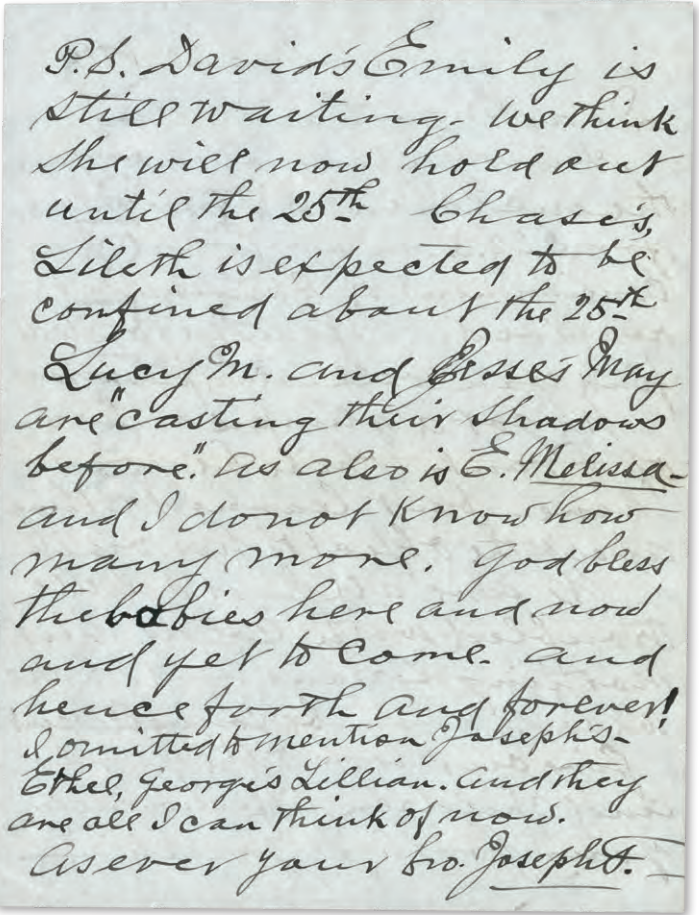 P.S. David's Emily is
still waiting- We think
she will now hold out
until the 25th Chase's,
Lileth is expected to be
confined about the 25th
Lucy M. and Jesse's May
are "casting their shadows
before". as also is E. Melissa-
and I do not know how
many more. God bless
the babies here and now
and yet to come- and
hence forth and forever!
I omitted to mention Joseph's-
Ethel, George's Lillian. and they
are all I can think of now.
As ever your bro. Joseph F.